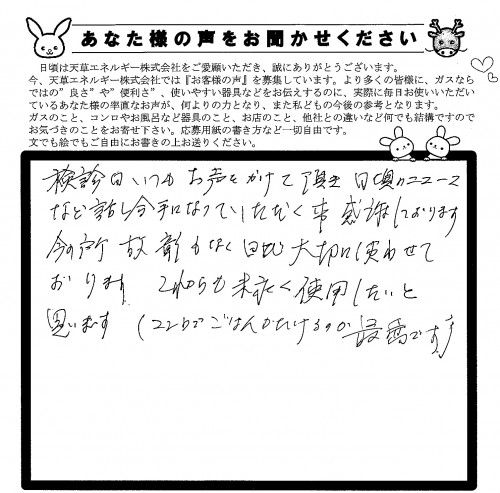 あなた様の声をお聞かせください
日頃は天草エネルギー株式会社をご愛顧いただき、誠にありがとうございます。
今、天草エネルギー株式会社では『お客様の声』を募集しています。より多くの皆様に、ガスなら
ではの"良さ"や"便利さ"、使いやすい器具などをお伝えするのに、実際に毎日お使いいただい
ているあなた様の率直なお声が、何よりの力となり、また私どもの今後の参考となります。
ガスのこと、コンロやお風呂など器具のこと、お店のこと、他社との違いなど何でも結構ですので
お気づきのことをお寄せ下さい。応募用紙の書き方など一切自由です。
文でも絵でもご自由にお書きの上お送りください。
検診日いつもお声をかけて頂き 日頃のニュース
など話し合手になっていただく事感謝しております
今の所 故障もなく 日比大切に使わせて
おります これからも末永く使用したいと
思います (コンロでごはんがたけるのが最高です)